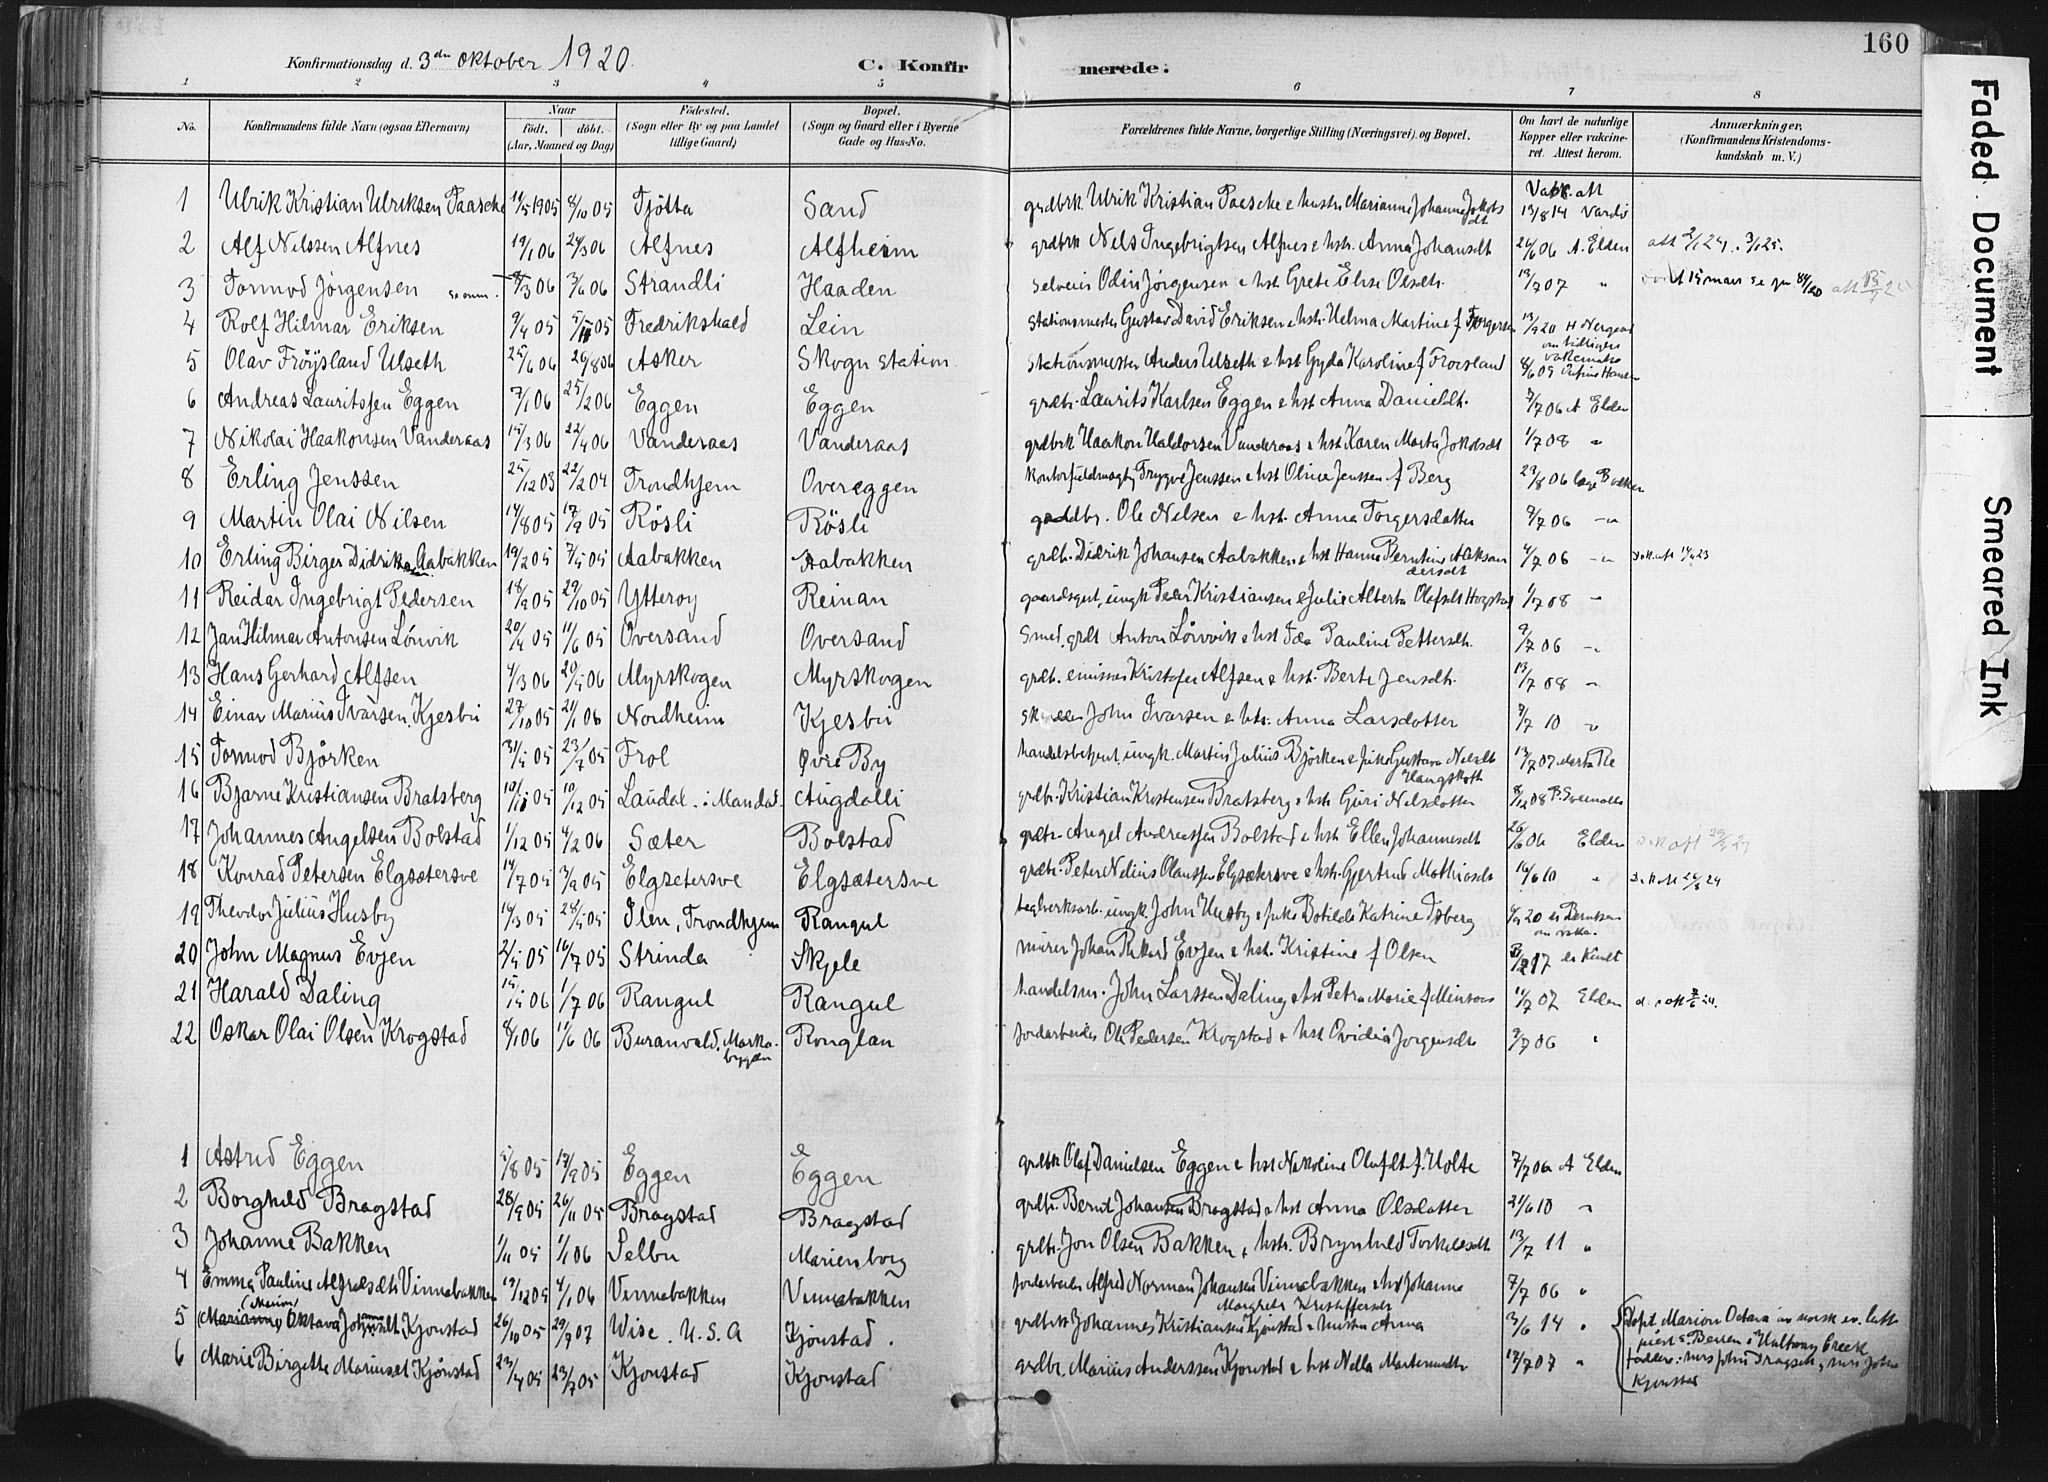 160
Konfirmationsdag d. 3die Oktober 1920. C. Konfirmerede.
1 2 3 4 5 6 7 8
No. Konfirmandens fulde Navn (ogsaa Efternavn) Naar født. døbt. (Aar, Maaned og Dag) Fødested. (Sogn eller By og paa Landet tillige Gaard) Bopæl. (Sogn og Gaard eller i Byerne Gade og Hus-No. Forældrenes fulde Navne, borgerlige Stilling (Næringsvei) og Bopæl. Om havt de naturlige Kopper eller vakcineret. Attest herom. Anmærkninger. (Konfirmandens Kristendomskundskab m. V.)
1 Ulrik Kristian Ulriksen Paasche 11/5 1905 8/10 05 Tjøtta Sand grdbrk Ulrik Kristian Paasche & hustr. Marianne Johanne Jakobsdt Vakc. att 13/8 14 Vardø
2 Alf Nilssen Alfnes 19/1 06 24/3 06 Alfnes Alfheim grdbrk Nels Ingebrigtsen Alfnes & hst. Anna Johansdt 26/6 06 A. Elden
3 Tormod Jørgensen 8/3 06 3/6 06 Strandli Haaden Selveier Odin Jørgensen & hst Grete Elise Olsdt. 13/7 07 "
4 Rolf Hilmar Eriksen 9/4 05 Fredrikshald Lein Stationsmester Gustav David Eriksen & hst. Helma Martine f Torgersen 13/9 20 H Nergaard om tidligere vakcination
5 Olav Frøysland Ulseth 25/6 06 26/8 06 Asker Skogn Station Stationsmester Anders Ulseth & hst Gyda Karoline f Froisland 8/6 09
6 Andreas Lauritssen Eggen 7/1 06 25/2 06 Eggen Eggen grdbr. Laurits Karlsen Eggen & hst Anna Danieldt. 7/7 06 A Elden
7 Nikolai Haakonsen Vanderaas 15/3 06 22/4 06 Vanderaas Vanderaas grdbrk Haakon Haldorsen Vanderaas & hst Karen Marta Jakobsdt 1/7 08 "
8 Erling Jenssen 25/12 03 22/2 04 Trondhjem Overeggen Kontorfuldmægtig Trygve Jenssen & hst Olive Jenssen f Berg 23/8 06
9 Martin Olai Nilsen 14/8 05 17/9 05 Røsli Røsli grdbr. Ole Nelsen & hst. Anna Torgersdatter 9/7 06 -"-
10 Erling Birger Didriksen Aabakken 19/2 05 7/5 05 Aabakken Aabakken grdb. Didrik Johansen Aabakken & hst Hanna Berntine Aleksandersdt 4/7 06 -"-
11 Reidar Ingebrigt Pedersen 18/9 05 29/10 05 Ytterøy Reinan gaardsgut, ungk Peder Kristiansen & Julie Alberta Olafsdt Hogstad 1/7 08 "
12 Jan Hilmar Antonsen Lønvik 20/4 05 11/6 05 Oversand Oversand Smed, grdb Anton Lønvik & hst Ida Pauline Pettersdt. 9/7 06 -"-
13 Hans Gerhard Alfsen 4/3 06 20/5 06 Myrskogen Myrskogen grdb. emissær Kristofer Alfsen & hst. Berte Jensdt. 13/7 08 "
14 Einar Marius Ivarsen Kjesbu 27/10 05 21/1 06 Nordheim Kjesbu John Ivarsen & hst. Anna Larsdotter 7/7 10 "
15 Tormod Bjørken 31/5 05 23/7 05 Frol Øvre By handelsbetjent ungk. Martin Julius Bjørken & pike Gustava Nilsdt Haugskott 13/7 07 Marta Re
16 Bjarne Kristiansen Bratsberg 10/11 05 10/12 05 Laudal i Mandal Augdalli grdbr. Kristian Kristensen Bratsberg & hst. Guri Nilsdotter 8/12 08
17 Johannes Angelsen Bolstad 1/12 05 4/2 06 Sæter Bolstad grdbr. Angel Andreassen Bolstad & hst Ellen Johannesdt 26/6 06 Elden
18 Konrad Petersen Elgsætersve 14/7 05 3/9 05 Elgsetersve Elgsætersve grdbr. Peter Nelius Olaussen Elgsætersve & hst. Gjertrud Mathiasdt 16/6 10 "
19 Theodor Julius Husby 16/3 05 28/5 05 Ilen, Trondhjem Rangul teglverksarb. ungk. John Husby & pike Botilde Katrine Isberg 4/9 20
20 John Magnus Evjen 2/5 05 16/7 05 Strinda Skjele murer Johan Rikard Evjen & hst. Kristine f Olsen
21 Harald Daling 15/5 06 1/7 06 Rangul Rangul handelsm. John Larssen Daling & hst Petra Marie f Minsaas 11/7 07 Elden
22 Oskar Olai Olsen Krogstad 8/1 06 17/6 06 Buranvald, Markabygden Ronglan Jordarbeider Ole Pedersen Krogstad & hst Ovidia Jorgensdt 9/7 06 "
1 Astrid Eggen 5/8 05 17/9 05 Eggen Eggen grdbrk Olaf Danielsen Eggen & hst Nikoline Olafsdt f. Holte 7/7 06 A Elden
2 Borghild Bragstad 28/9 05 26/11 05 Bragstad Bragstad grdbr. Bernt Johansen Bragstad & hst Anna Olsdatter 21/6 10 "
3 Johanne Bakken 1/11 05 1/1 06 Selbu Marienborg grdbr. Jon Olsen Bakken & hstr. Brynhild Torkildsdt 13/7 11 "
4 Emma Pauline Alfredsdt. Vinnabakken 19/12 05 4/1 06 Vinnabakken Vinnabakken Jordarbeider Alfred Norman Johansen Vinnabakken & hst Johanna Margrete Kristiffersdt 7/7 06 "
5 Marianne (Marion) Oktava Johannesdt. Kjønstad 26/10 05 29/9 07 Wise. U.S.A Kjønstad. grdbrk Johannes Kristiansen Kjønstad & hustru Anna 3/6 14 " Døpt Marion Octava av norsk ev. luth prest & Bersen i Halfway Creek faddere: mrs John Kjønstad
6 Marie Birgette Mariusdt Kjønstad 23/4 05 23/7 05 Kjønstad Kjønstad grdbr. Marius Anderssen Kjønstad & hst Nella Martinusdt 13/7 07 "
Faded Document
Smeared Ink